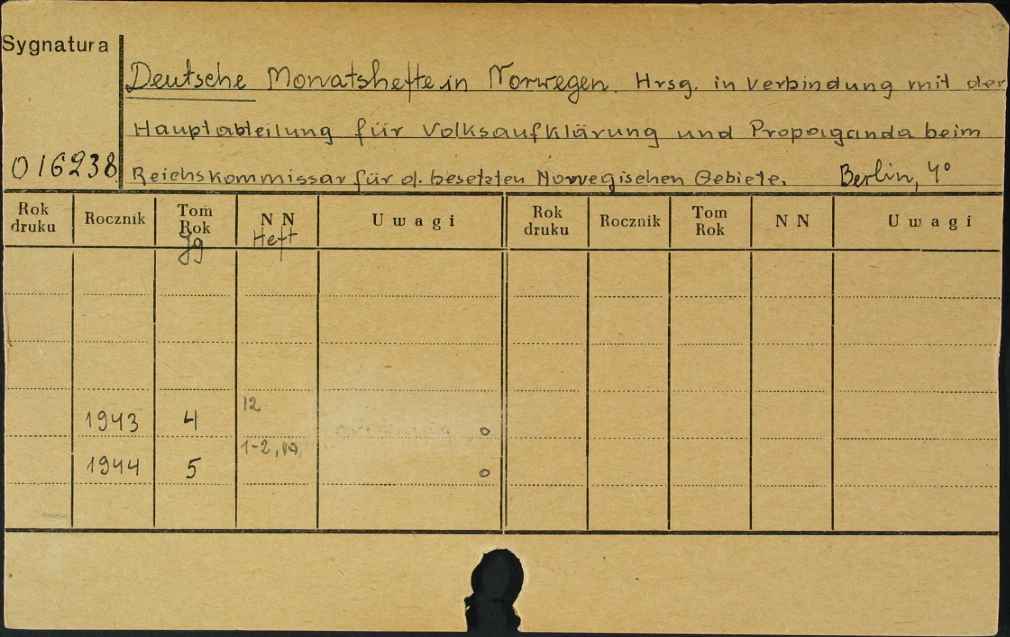 Sygnatura
Deutsche Monatshefte in Norwegen. Hrsg. in Verbindung mit der
Hauptabteilung für Volksaufklärung und Propaganda beim
016238 Reichskommissar für d. besetzten Norwegischen Gebiete. Berlin, 4°
Rok druku Rocznik Tom Rok Jg N N Heft U w a g i Rok druku Rocznik Tom Rok N N U w a g i
1943 4 12 o
1944 5 1-2, o